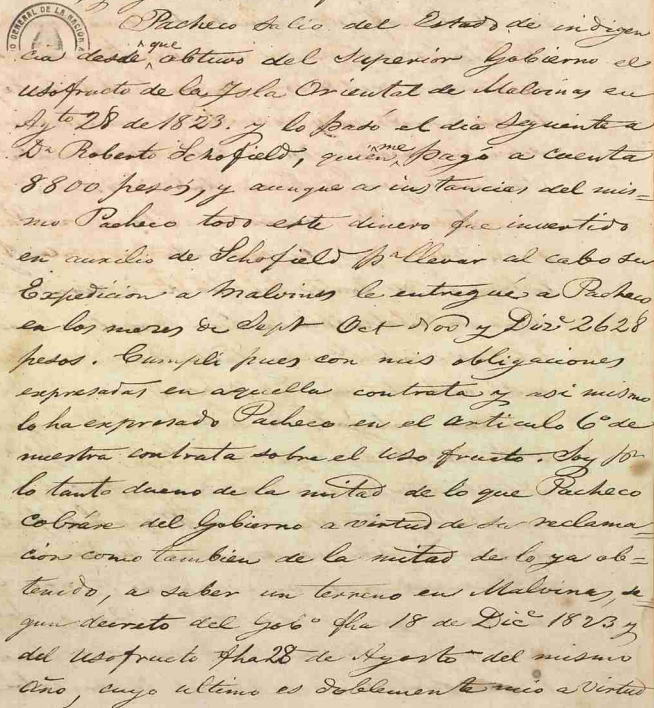 GENERAL DE LA NACION
Pacheco salio del Estado de indigen
cia desde que obtuvo del Superior Gobierno el
usofructo de la Isla Oriental de Malvinas en
Agto 28 de 1823. y lo pasó el dia seguiente a
Dn Roberto Schofield, quien me pagó a cuenta
8800 pesos, y aunque a instancias del mis=
mo Pacheco todo este dinero fue invertido
en auxilio de Schofield pa llevar al cabo su
Expedicion a Malvinas le entregué a Pacheco
en los meses de Sept Oct Nov y Dize 2628
pesos. Cumpli pues con mis obligaciones
expresadas en aquella contrata y asi mismo
lo ha expresado Pacheco en el articulo 6o de
nuestra contrata sobre el uso fructo. Soy pr
lo tanto dueno de la mitad de lo que Pacheco
cobráre del Gobierno a virtud de su reclama=
cion como tambien de la mitad de lo ya ob=
tenido, a saber un terreno en Malvinas, se=
gun decreto del Gobo fha 18 de Dice 1823 y
del usofructo fha 28 de Agosto del mismo
año, cuyo ultimo es doblemente mio a virtud